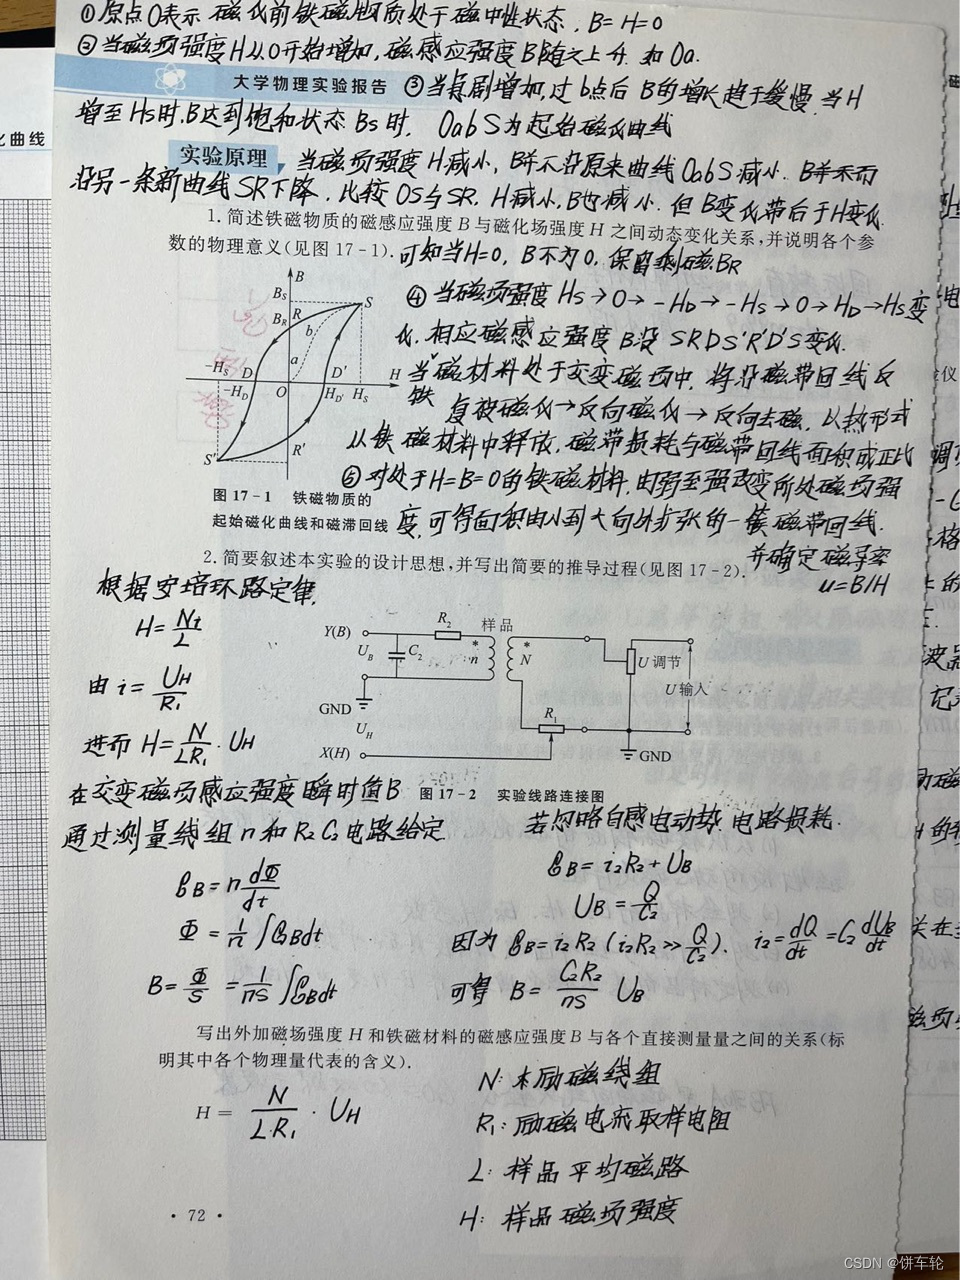 ①原点O表示磁化前铁磁物质处于磁中性状态, B=H=0
②当磁场强度H从0开始增加, 磁感应强度B随之上升. 如Oa.
大学物理实验报告 ③当H急剧增加,过b点后 B的增长趋于缓慢. 当H
增至Hs时.B达到饱和状态 Bs时, OabS为起始磁化曲线
化曲线
实验原理 当磁场强度H减小, B并不沿原来曲线OabS减小. 而
沿另一条新曲线SR下降. 比较OS与SR. H减小,B也减小. 但B变化滞后于H变化.
1. 简述铁磁物质的磁感应强度B与磁化场强度H之间动态变化关系,并说明各个参
数的物理意义(见图17-1). 可知当H=0, B不为0, 保留剩磁BR
B
Bs
BR R
S
b
a
-Hs D O D' H
-HD HD' Hs
S' R'
④ 当磁场强度 Hs→0→-HD→-Hs→0→HD→Hs变
化. 相应磁感应强度B沿SRDS'R'D'S变化.
当铁磁材料处于交变磁场中, 将沿磁滞回线反
复被磁化→反向磁化→反向去磁. 以热形式
从铁磁材料中释放, 磁滞损耗与磁滞回线面积成正比
图 17-1 铁磁物质的
起始磁化曲线和磁滞回线
⑤ 对处于H=B=0的铁磁材料, 由弱至强改变所处磁场强
度, 可得面积由小到大向外扩张的一簇磁滞回线.
2. 简要叙述本实验的设计思想,并写出简要的推导过程(见图17-2).
并确定磁导率
u=B/H
根据安培环路定律,
H=Ni/L
由 i=UH/R1
进而 H=N/LR1·UH
Y(B) R2 样品
UB C2 * n * N U调节
U输入
GND
UH R1
X(H) GND
图 17-2 实验线路连接图
在交变磁场感应强度瞬时值B
通过测量线组n和R2C2电路给定.
若忽略自感电动势. 电路损耗.
εB=n dΦ/dt
Φ=1/n ∫εBdt
B=Φ/S=1/nS ∫εBdt
εB=i2R2+UB
UB=Q/C2
因为 εB=i2R2 (i2R2≫Q/C2). i2=dQ/dt=C2 dUB/dt
可得 B=C2R2/nS UB
写出外加磁场强度H和铁磁材料的磁感应强度B与各个直接测量量之间的关系(标
明其中各个物理量代表的含义).
H= N/LR1·UH
N: 励磁线组
R1: 励磁电流取样电阻
L: 样品平均磁路
H: 样品磁场强度
· 72 ·
CSDN @饼车轮